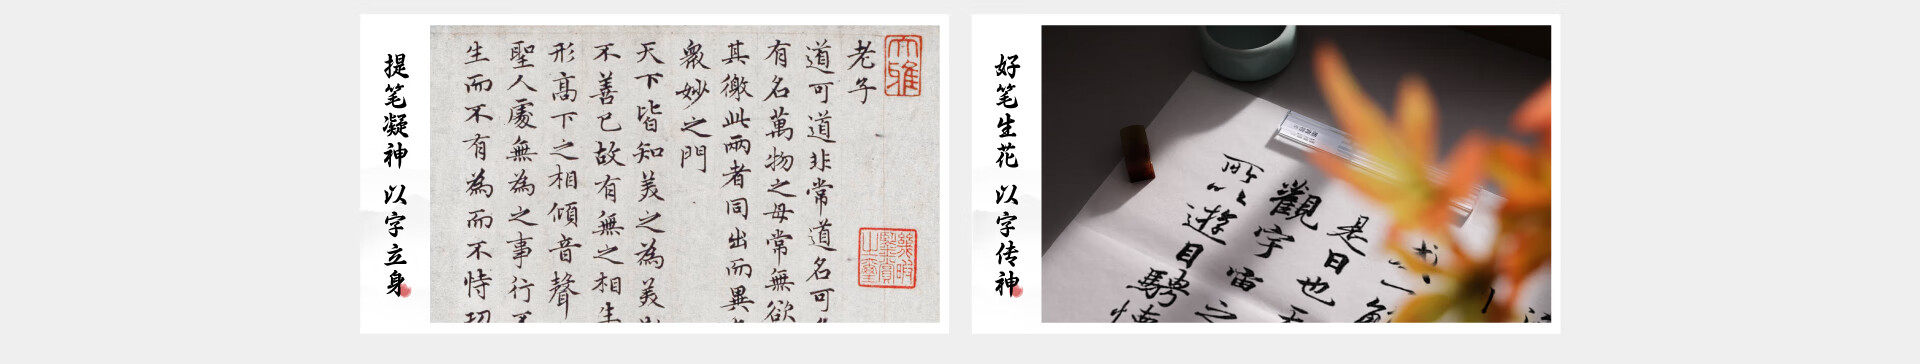 提笔凝神 以字立身
大雅
老子
道可道非常道名可
有名萬物之母常無欲
其徼此兩者同出而異
衆妙之門
天下皆知美之為美
不善已故有無之相生
形高下之相傾音聲
聖人處無為之事行不
生而不有為而不恃
幾暇鑒賞之璽
好笔生花 以字传神
是日也天
觀宇宙之
所以遊目騁懷